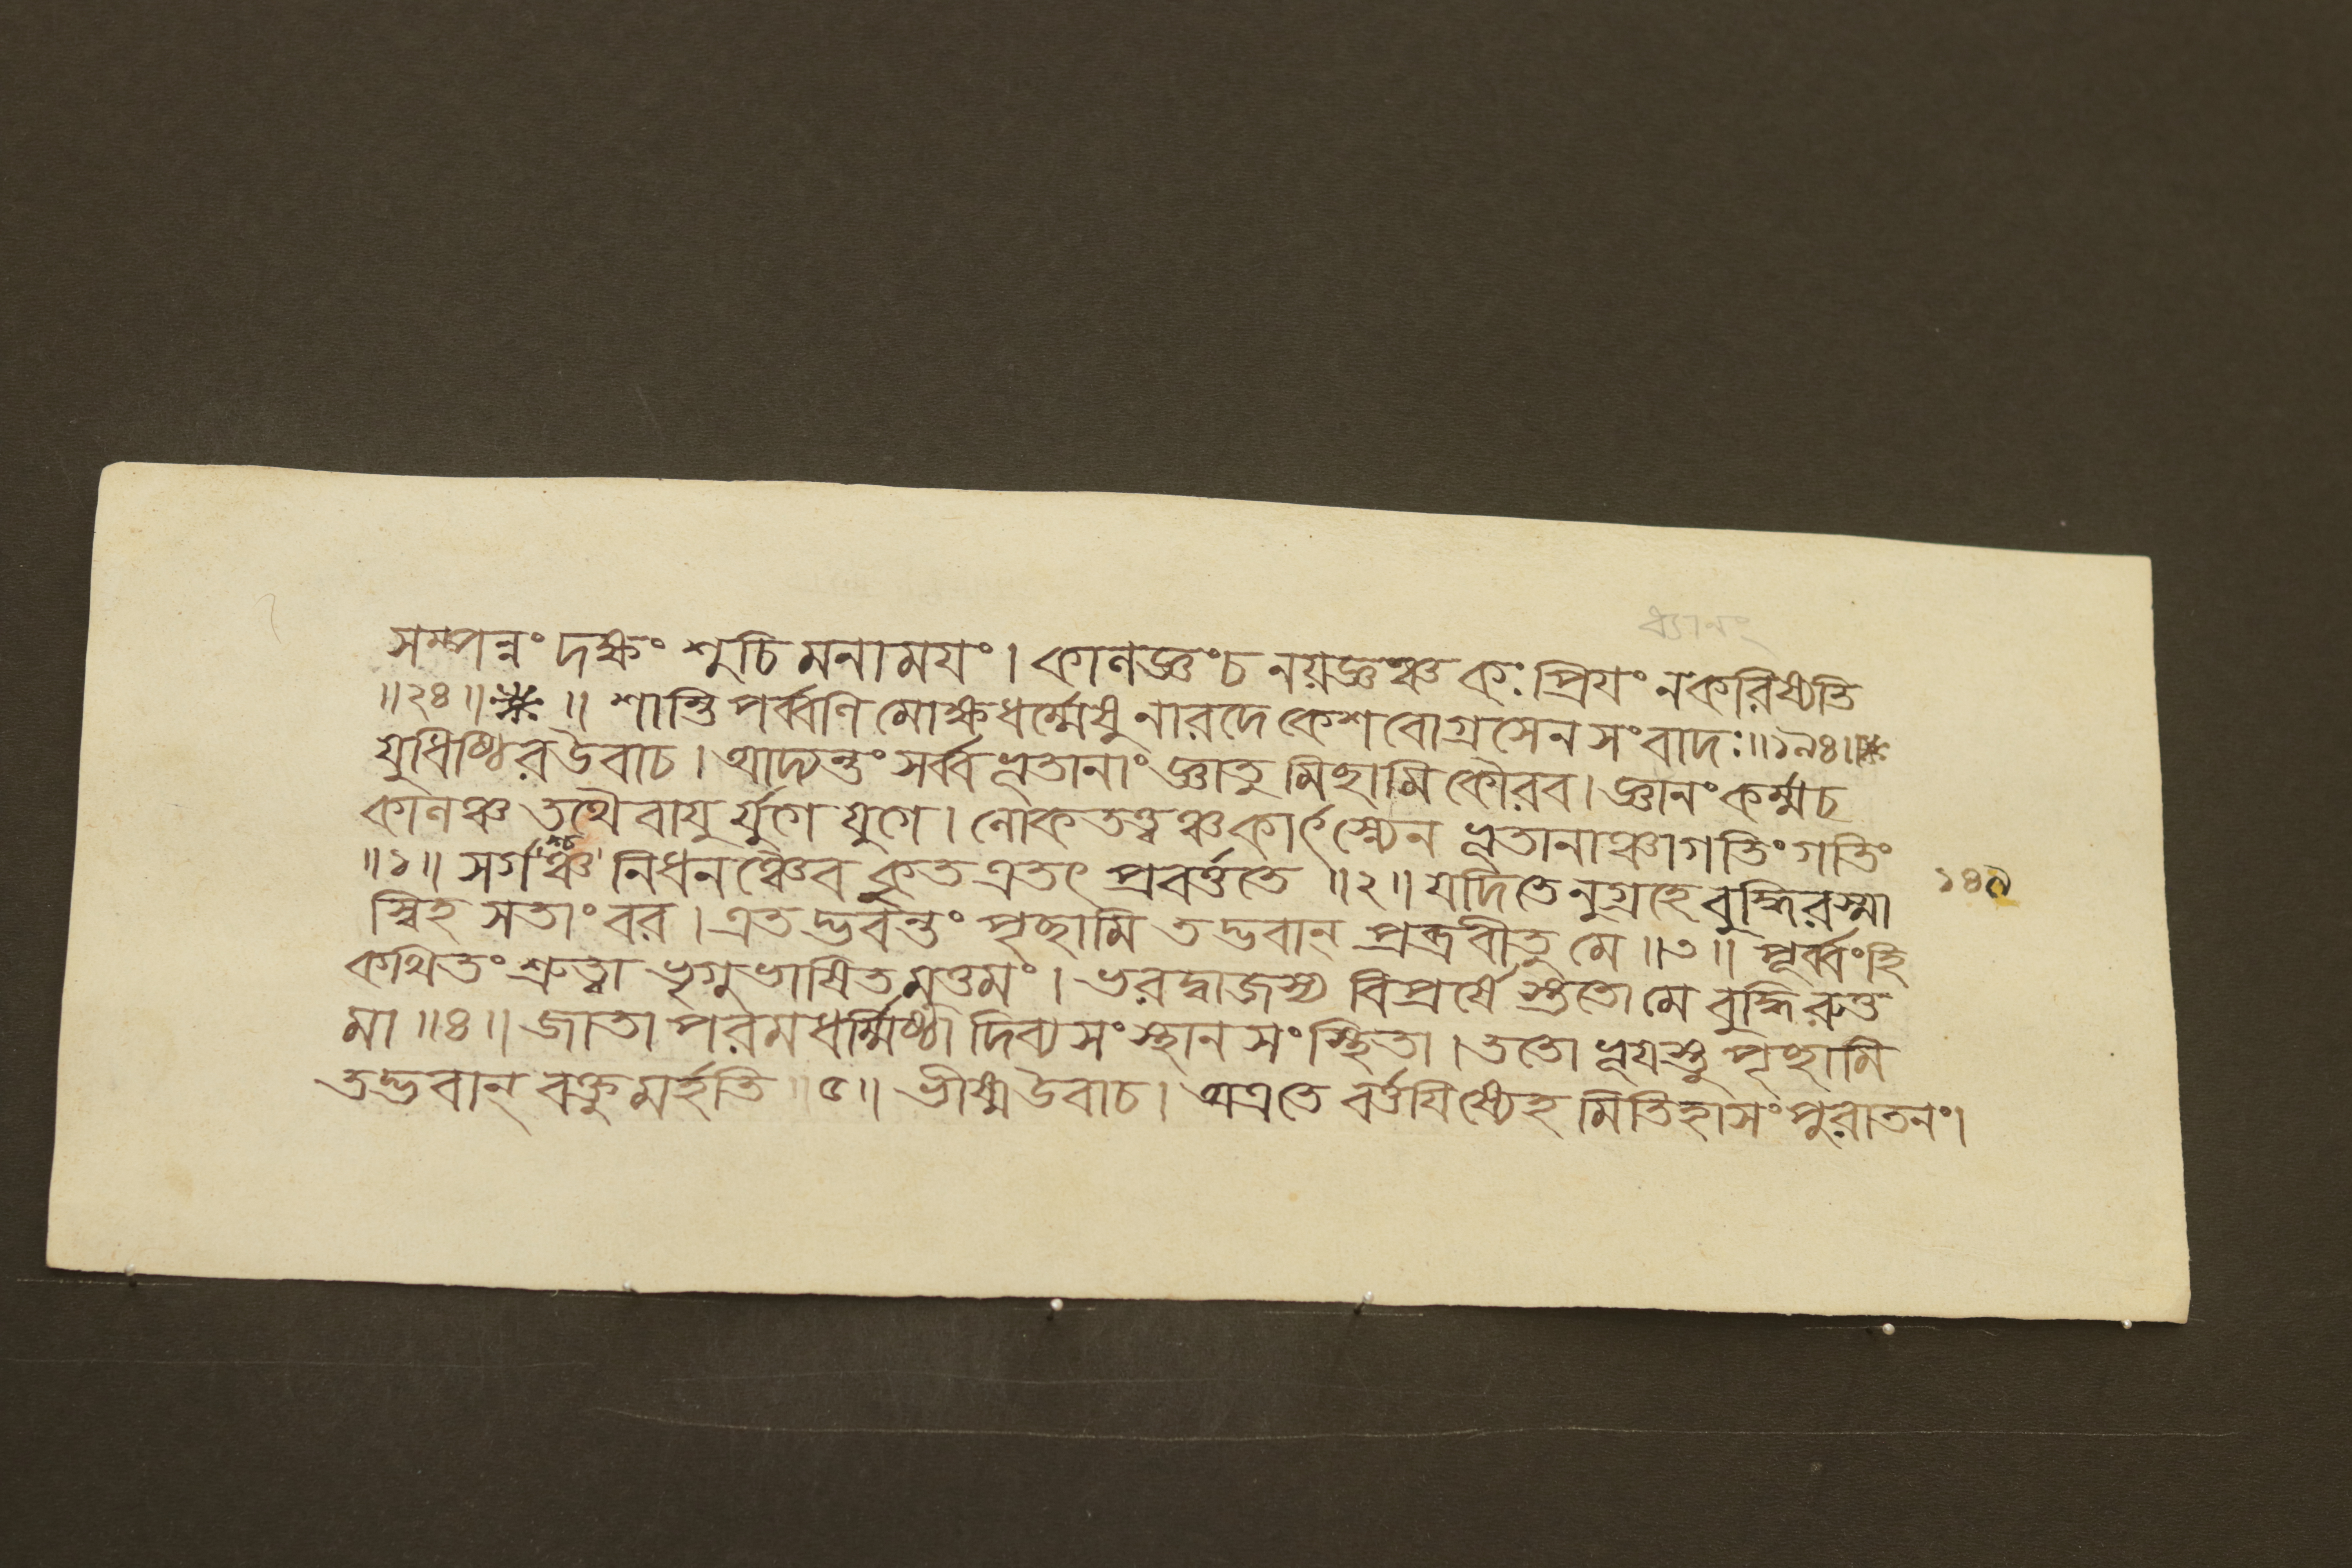 ধ্যানং
সম্পন্নং দক্ষং শুচি মনাময়ং। কালজ্ঞং চ নয়জ্ঞঞ্চ কঃ প্রিয়ং ন করিষ্যতি
॥২৪॥ ॥ শান্তি পর্ব্বণি মোক্ষধর্ম্মেষু নারদে কেশবোগ্রসেন সংবাদঃ॥১৯৪॥
যুধিষ্ঠির উবাচ। আদ্যন্তং সর্ব্বভূতানাং জ্ঞাতু মিচ্ছামি কৌরব। জ্ঞানং কর্ম্ম চ
কালঞ্চ তথৈবায়ু র্যুগে যুগে। লোকতত্ত্বঞ্চ কার্ৎস্ন্যেন ভূতানাঞ্চাগতিং গতিং
॥১॥ সর্গঞ্চ নিধনঞ্চৈব কুত এতৎ প্রবর্ত্ততে ॥২॥ যদি তেনুগ্রহে বুদ্ধি রস্মা ১৪৭
স্বিহ সতাং বর। এতদ্ভবন্তং পৃচ্ছামি তদ্ভবান্ প্রব্রবীতু মে ॥৩॥ পূর্ব্বং হি
কথিতং শ্রুত্বা ভৃগুভাষিত মুত্তমং। ভরদ্বাজস্য বিপ্রর্ষে স্ততো মে বুদ্ধি রুত্ত
মা ॥৪॥ জাতা পরমধর্ম্মিষ্ঠা দিব্যসংস্থান সংস্থিতা। ততো ভূয়স্তু পৃচ্ছামি
তদ্ভবান্ বক্তুমর্হতি ॥৫॥ ভীষ্ম উবাচ। অত্রতে বর্ত্তয়িষ্যেহ মিতিহাসং পুরাতনং।